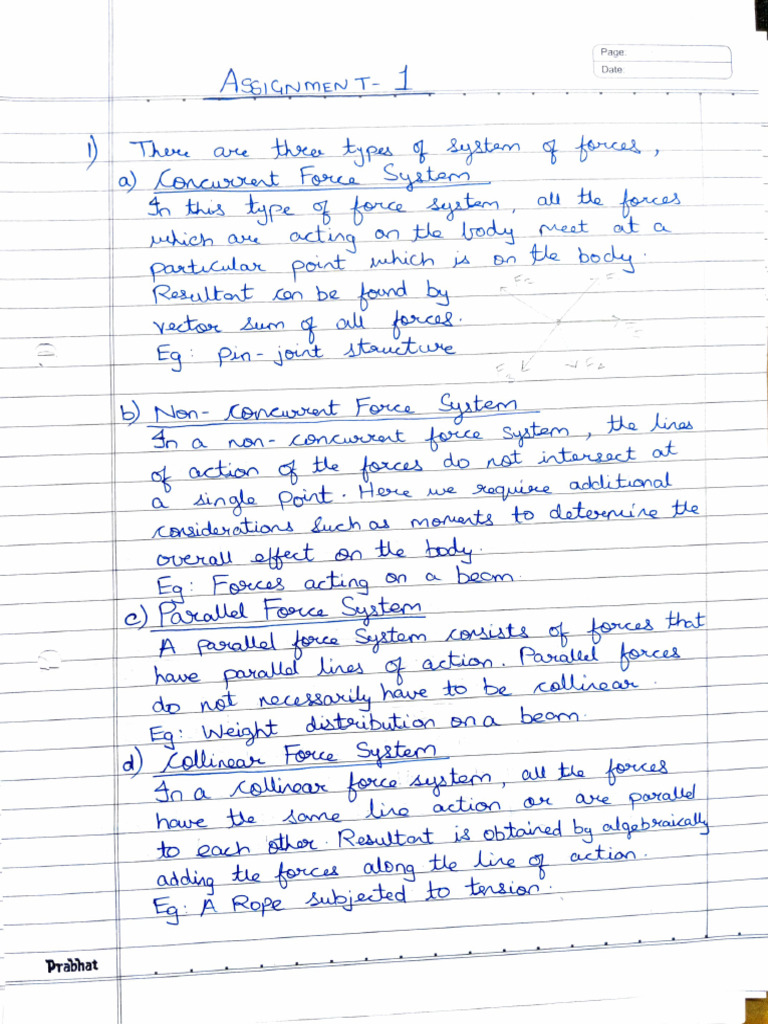 Page:
Date:
ASSIGNMENT- 1
1) There are three types of system of forces,
a) Concurrent Force System
In this type of force system, all the forces
which are acting on the body meet at a
particular point which is on the body.
Resultant can be found by
vector sum of all forces.
Eg: pin-joint structure
b) Non-Concurrent Force System
In a non-concurrent force system, the lines
of action of the forces do not intersect at
a single point. Here we require additional
considerations such as moments to determine the
overall effect on the body.
Eg: Forces acting on a beam.
c) Parallel Force System
A parallel force system consists of forces that
have parallel lines of action. Parallel forces
do not necessarily have to be collinear.
Eg: Weight distribution on a beam.
d) Collinear Force System
In a collinear force system, all the forces
have the same line action or are parallel
to each other. Resultant is obtained by algebraically
adding the forces along the line of action.
Eg: A Rope subjected to tension.
Prabhat